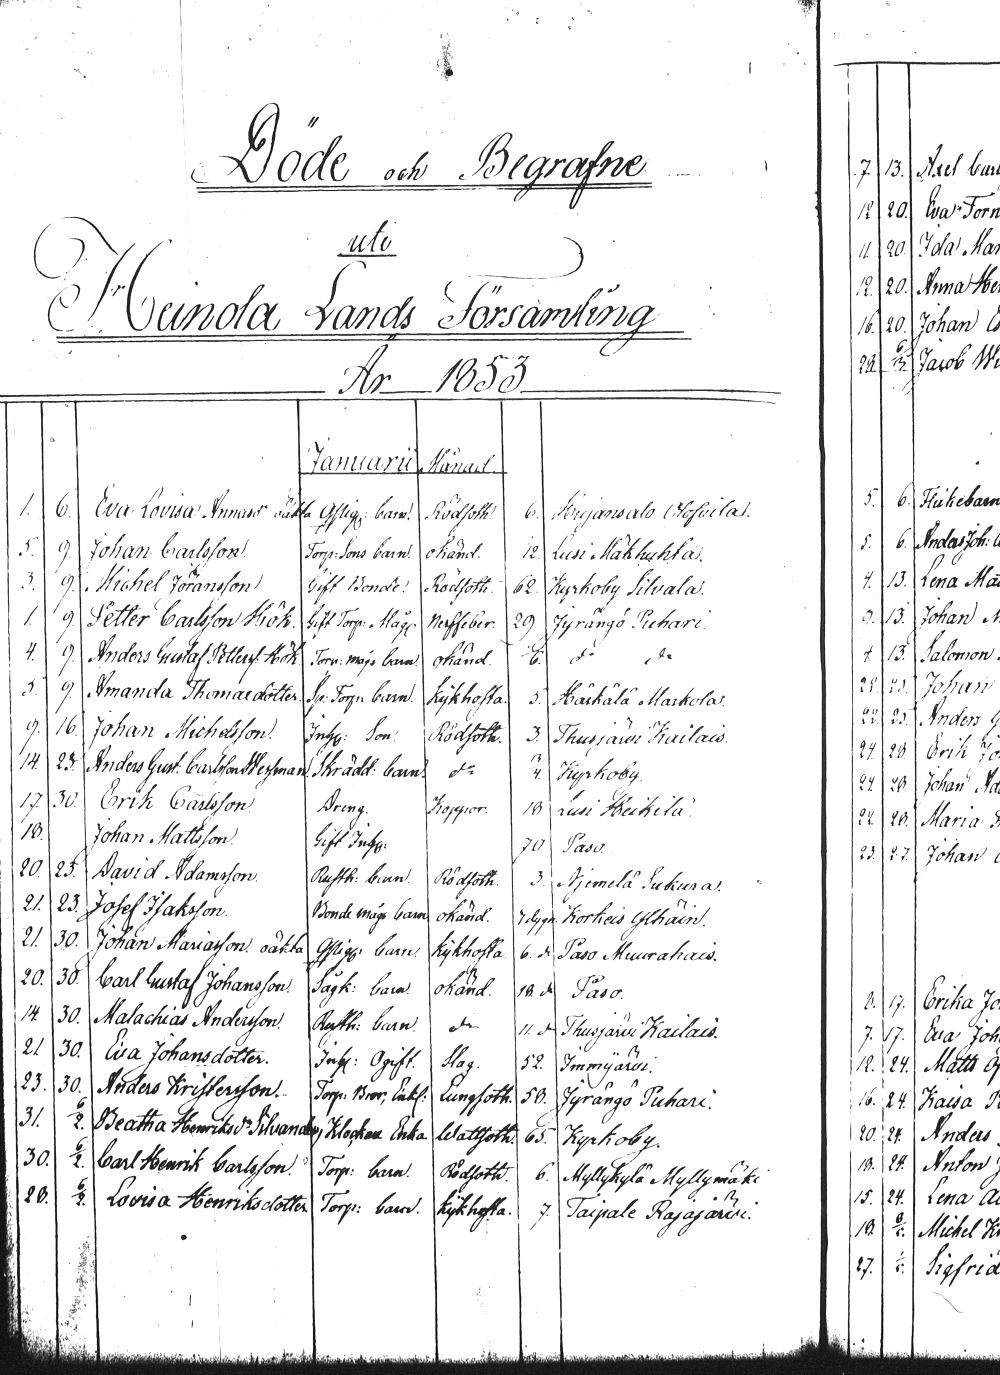 Döde och Begrafne
uti
Heinola Lands Församling
År 1853
Januarii Månad
1. 6. Eva Lovisa Annasr oäkta barn. Rödsoth 6.
5. 9. Johan Carlsson. Torp: Sons barn. okänd. 12. Lusi Mäkhuhta.
3. 9. Michel Göransson Gift Bonde. Rödsoth. 62. Kyrkoby Silvala.
1. 9. Petter Carlsson Hök. Gift Torp: Måg. Nerffeber. 29 Jyrängö Puhari.
4. 9. Anders Gustaf Petterss. Hök Torp: mågs barn. okänd. 6. do do
5. 9. Amanda Thomasdotter. Torp: barn. Kikhosta. 5. Härkälä Markola.
9. 16. Johan Michelsson. Inhys: Son. Rödsoth. 3. Thusjärvi Kailais.
14. 23. Anders Gust. Carlsson Skrädd: barn. do 3/4 Kyrkoby.
17. 30. Erik Carlsson Dreng. Koppor. 18 Lusi Heikilä.
18. Johan Mattsson. Gift Inhys: 70 Paso.
20. 25. David Adamsson. Rusth: barn. Rödsoth. 3. Njemelä Eukura.
21. 23. Josef Isaksson. Bonde mågs barn okänd. 7 dygn.
21. 30. Johan Mariasson. oäkta barn. Kikhosta. 6. do Paso Muurahais.
20. 30. Carl Gustaf Johansson. barn. okänd. 18. do Paso.
14. 30. Malachias Andersson. Rusth: barn. do 11. do Thusjärvi Kailais.
21 30. Eva Johansdotter. Inhys: Ogift. Slag. 52. Immijärvi.
23. 30. Anders Kristersson. Torp: Bror, Enkl: Lungsoth. 58. Jyrängö Puhari.
31. 6/2. Beatha Henriksdr Silvander, Klockare Enka Wattsoth. 65. Kyrkoby.
30. 6/2. Carl Henrik Carlsson. Torp: barn. Rödsoth. 6. Myllykylä Myllymäki
28. 6/2. Lovisa Henriksdotter Torp: barn. Kikhosta. 7. Taipale Rajajärvi.
7. 13. Axel
12 20. Eva
11. 20. Ida
12. 20. Anna
16. 20. Johan
Jacob
5. 6.
5. 6. Anders Joh:
4. 13. Lena
13. Johan
13. Salomon
Johan
Anders
24 Erik
24 Johan
Maria
23. 27. Johan
17. Erika
7. 17. Eva
12. 24. Matts
16. 24. Kaisa
20. 24. Anders
18. 24. Anton
15. 24. Lena
18. Michel
27. Sigfrid